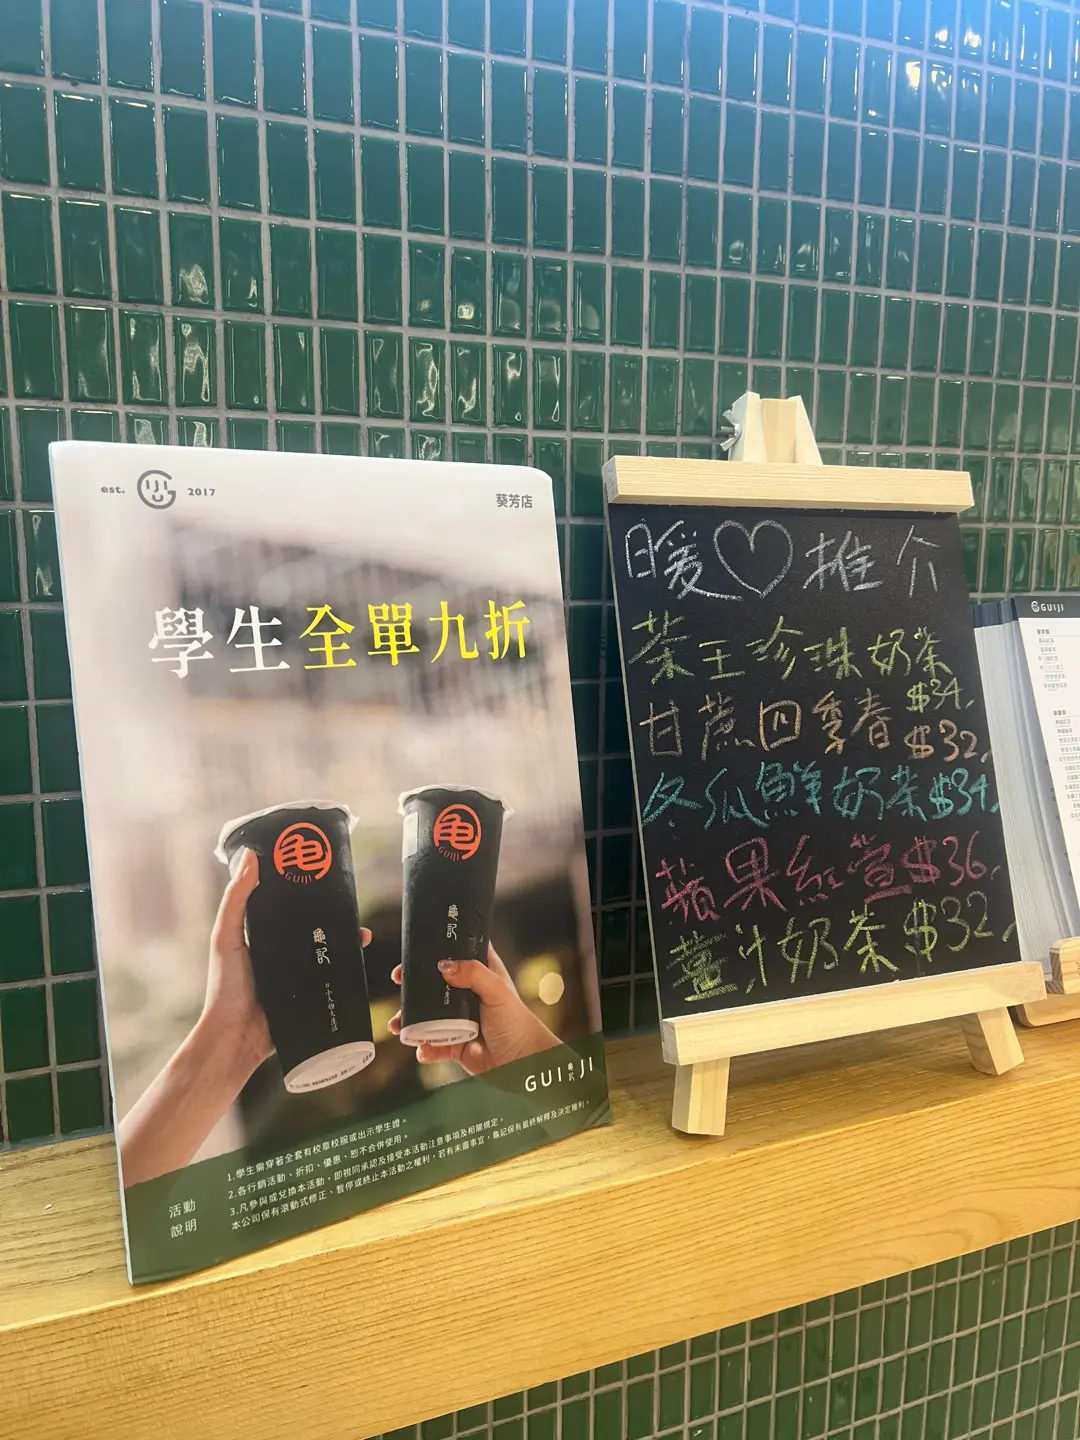 est. 2017
葵芳店
學生全單九折
龜
GUIJI
龜記
龜
GUIJI
龜記
GUI龜記JI
活動
說明
1.學生需穿著全套有校章校服或出示學生證。
2.各行銷活動、折扣、優惠、恕不合併使用。
3.凡參與或兌換本活動，即視同承認及接受本活動注意事項及相關規定，
本公司保有滾動式修正、暫停或終止本活動之權利，若有未盡事宜，龜記保有最終解釋及決定權利。
暖♡推介
茶王珍珠奶茶
$34.
甘蔗四季春 $32.
冬瓜鮮奶茶$34.
蘋果紅萱$36.
薑汁奶茶 $32.
GUIJI